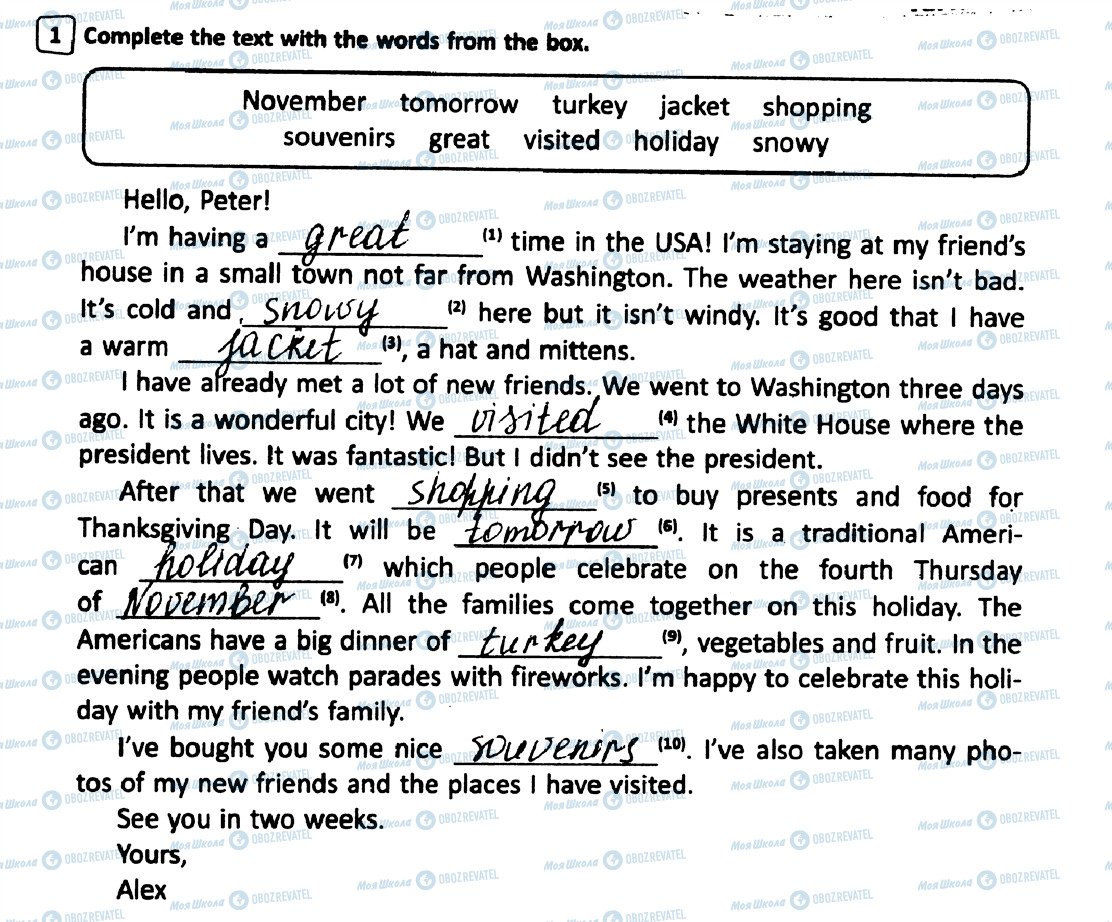 1 Complete the text with the words from the box.
November tomorrow turkey jacket shopping
souvenirs great visited holiday snowy
Hello, Peter!
I'm having a great (1) time in the USA! I'm staying at my friend's
house in a small town not far from Washington. The weather here isn't bad.
It's cold and snowy (2) here but it isn't windy. It's good that I have
a warm jacket (3), a hat and mittens.
I have already met a lot of new friends. We went to Washington three days
ago. It is a wonderful city! We visited (4) the White House where the
president lives. It was fantastic! But I didn't see the president.
After that we went shopping (5) to buy presents and food for
Thanksgiving Day. It will be tomorrow (6). It is a traditional Ameri-
can holiday (7) which people celebrate on the fourth Thursday
of November (8). All the families come together on this holiday. The
Americans have a big dinner of turkey (9), vegetables and fruit. In the
evening people watch parades with fireworks. I'm happy to celebrate this holi-
day with my friend's family.
I've bought you some nice souvenirs (10). I've also taken many pho-
tos of my new friends and the places I have visited.
See you in two weeks.
Yours,
Alex
Моя Школа OBOZREVATEL